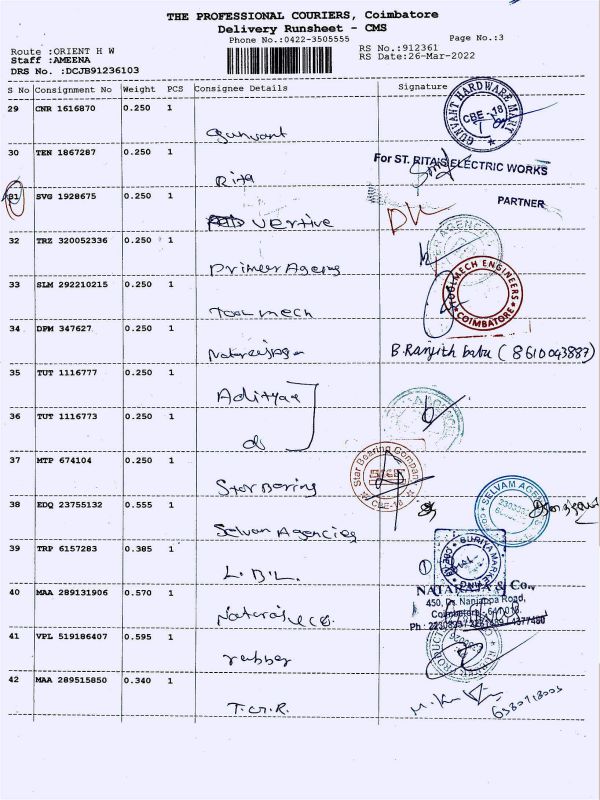 THE PROFESSIONAL COURIERS, Coimbatore
Delivery Runsheet - CMS
Phone No.:0422-3505555 Page No.:3
Route :ORIENT H W RS No.:912361
Staff :AMEENA RS Date:26-Mar-2022
DRS No. :DCJB91236103
S No Consignment No Weight PCS Consignee Details Signature
29 CNR 1616870 0.250 1
Gunvant
GUNVANT HARDWARE MART CBE - 18
30 TEN 1867287 0.250 1
Rita
For ST. RITA'S ELECTRIC WORKS
31 SVG 1928675 0.250 1
PARTNER
Vertive
32 TRZ 320052336 0.250 1
Primeer Agency
33 SLM 292210215 0.250 1
Toolmech
TOOLMECH ENGINEERS COIMBATORE
34 DPM 347627 0.250 1
B. Ranjith babu (8610043887)
35 TUT 1116777 0.250 1
Adityaa
36 TUT 1116773 0.250 1
do
37 MTP 674104 0.250 1
Star Bering
Star Bearing Company CBE-18
38 EDQ 23755132 0.555 1
Selvan Agencies
SELVAM AGEN
39 TRP 6157283 0.385 1
L.B.L.
40 MAA 289131906 0.570 1
NATARAJA & Co.,
450, Dr. Nanjappa Road,
Coimbatore - 641 018.
Nataraj & co.
41 VPL 519186407 0.595 1
rubber
42 MAA 289515850 0.340 1
T.M.R.